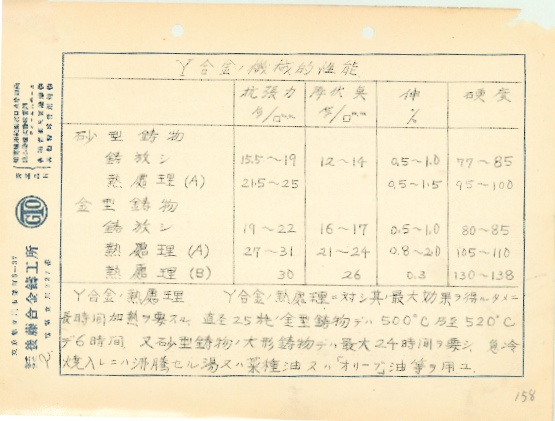 Y合金ノ機械的性能
抗張力 降伏奌 伸 硬度
瓩/□mm 瓩/□mm %
砂型鋳物
鋳放シ 15.5〜19 12〜14 0.5〜1.0 77〜85
熱處理(A) 21.5〜25 0.5〜1.5 95〜100
金型鋳物
鋳放シ 19〜22 16〜17 0.5〜1.0 80〜85
熱處理(A) 27〜31 21〜24 0.8〜2.0 105〜110
熱處理(B) 30 26 0.3 130〜138
Y合金ノ熱處理 Y合金ノ熱處理ニ対シ其ノ最大効果ヲ得ルタメニ
長時間加熱ヲ要スル、直径25粍ノ金型鋳物デハ500°C乃至520°C
デ6時間、又砂型鋳物ノ大形鋳物デハ最大24時間ヲ要シ、急冷
焼入レニハ沸騰セル湯又ハ菜種油又ハ「オリーブ」油等ヲ用ユ
158
GIO
後藤合金鋳工所